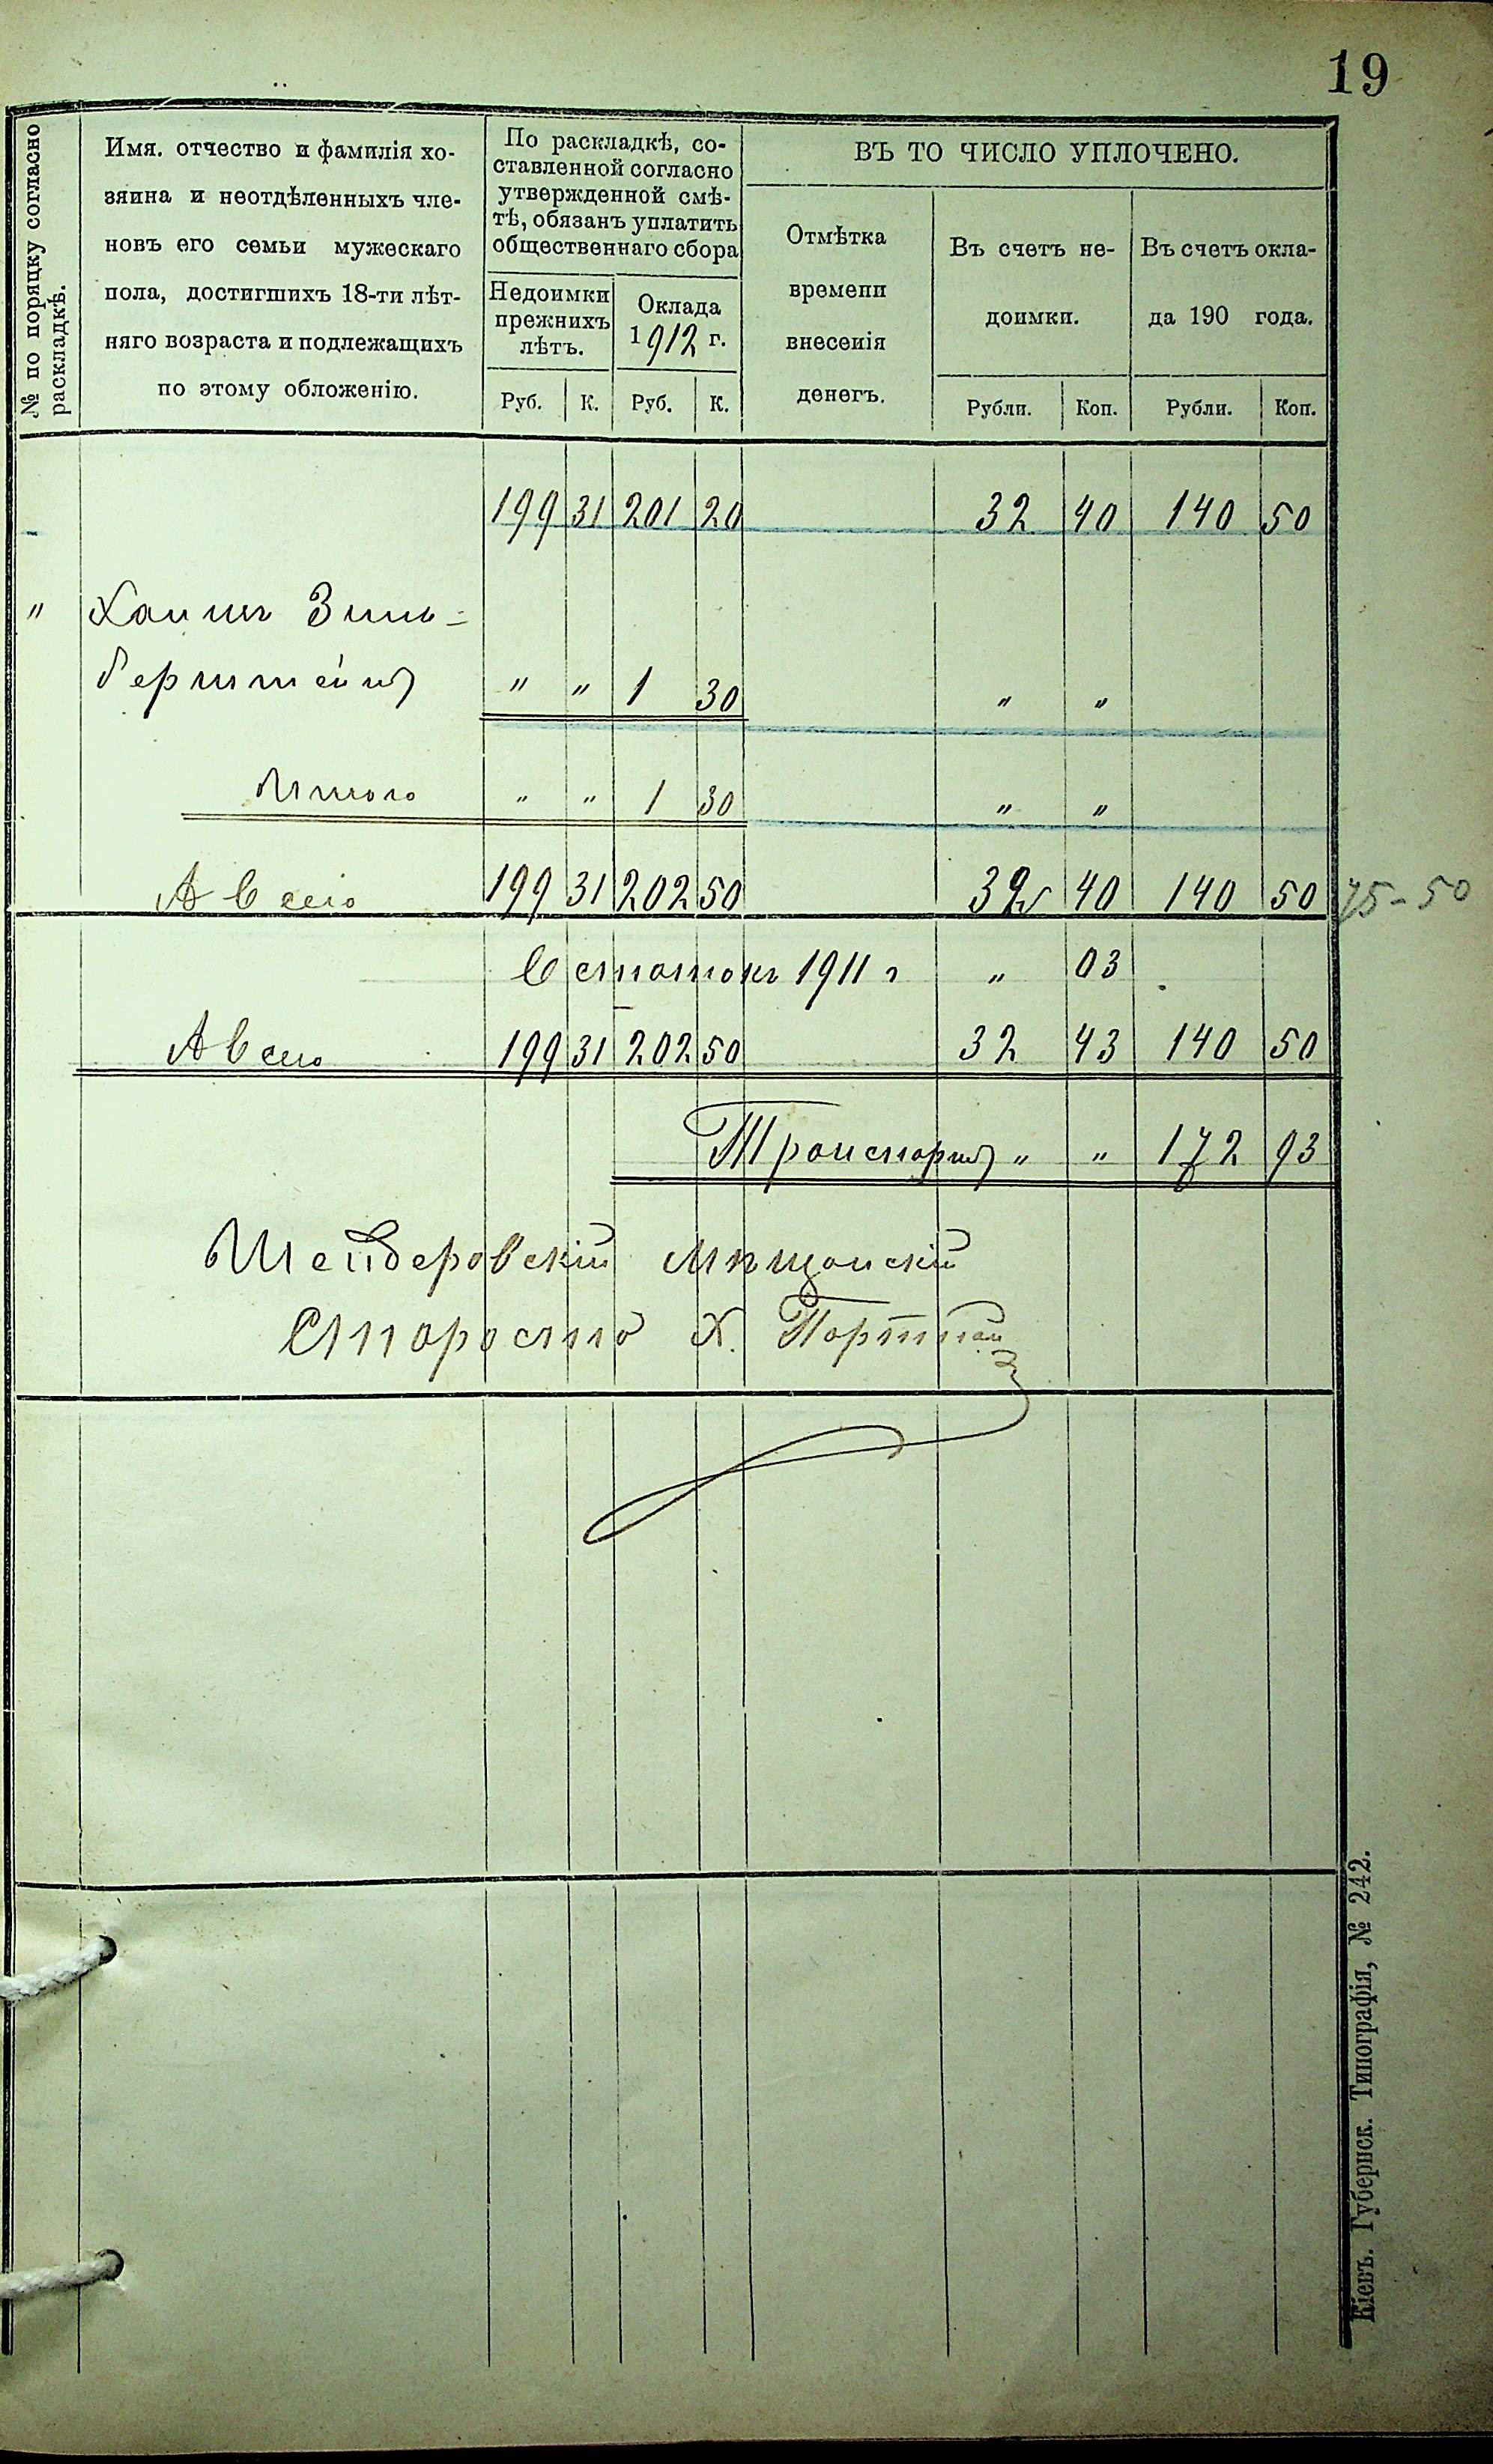 19
№ по порядку согласно
раскладкѣ.
Имя. отчество и фамилія хо-
зяина и неотдѣленныхъ чле-
новъ его семьи мужескаго
пола, достигшихъ 18-ти лѣт-
няго возраста и подлежащихъ
по этому обложенію.
По раскладкѣ, со-
ставленной согласно
утвержденной смѣ-
тѣ, обязанъ уплатить
общественнаго сбора
Недоимки
прежнихъ
лѣтъ.
Оклада
1912 г.
Руб. К. Руб. К.
ВЪ ТО ЧИСЛО УПЛОЧЕНО.
Отмѣтка
времени
внесенія
денегъ.
Въ счетъ не-
доимки.
Въ счетъ окла-
да 190 года.
Рубли. Коп. Рубли. Коп.
199 31 201 20 32 40 140 50
" Хаимъ Зиль-
берштейнъ " " 1 30 " "
Итого " " 1 30 " "
А всего 199 31 202 50 32 40 140 50 75-50
Остатокъ 1911 г " 03
А всего 199 31 202 50 32 43 140 50
Транспортъ " " 172 93
Шендеровскій Мѣщанскій
Староста Х. Портной
Кіевъ. Губернск. Типографія, № 242.